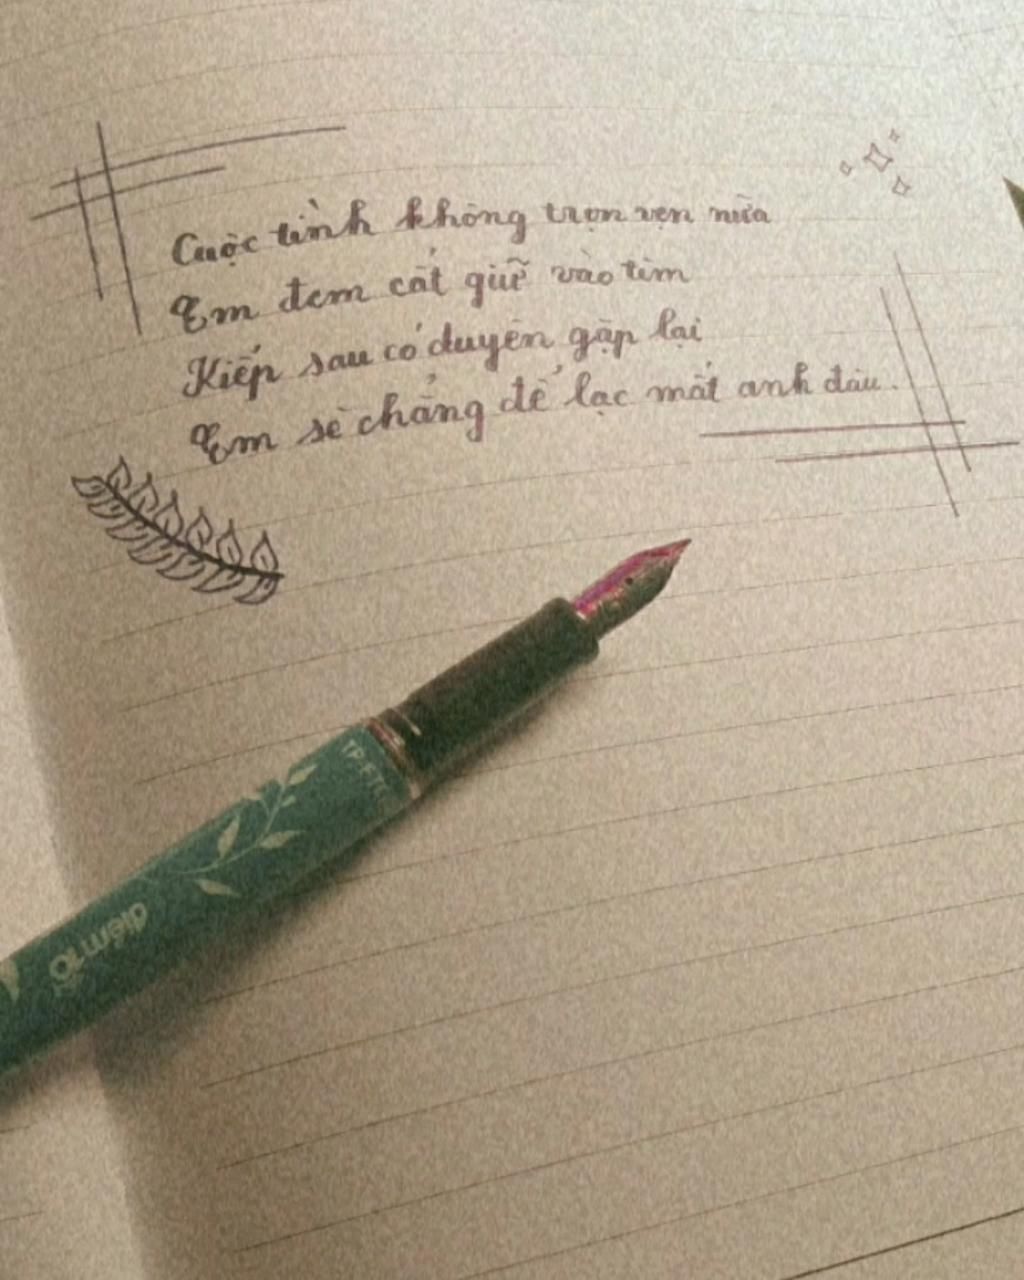 Cuộc tình không trọn vẹn nữa
Em đem cất giữ vào tim
Kiếp sau có duyên gặp lại
Em sẽ chẳng để lạc mất anh đâu.
TP-FT
điểm 10